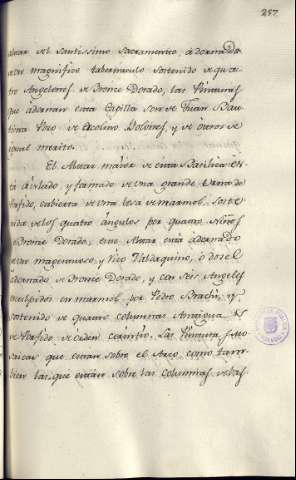 257
Altar del Santissimo Sacramento, adornado
de un magnifico tabernaculo sostenido de qua-
tro Angeles de Bronce Dorado, las Pinturas
que adornan esta Capilla son de Juan Bau-
tista de Boloñes, y de otros de
igual merito.
El Altar maior de esta Basilica es-
tá aislado y formado de una grande Urna de
Porfido, cubierta de una losa de marmol, soste-
nida de los quatro ángulos por quatro Niños
de Bronce Dorado, este Altar está adornado
de un magestuoso, y rico Valdaquino, ó dosel
adornado de Bronce Dorado, y con seis Angeles
esculpidos en marmol por Pedro Bracci, y
sostenido de quatro columnas Antiguas
de Porfido de orden corintio. Las Pinturas Mo-
saicas que estan sobre el Arco, como tam-
bien las que están sobre las columnas de las